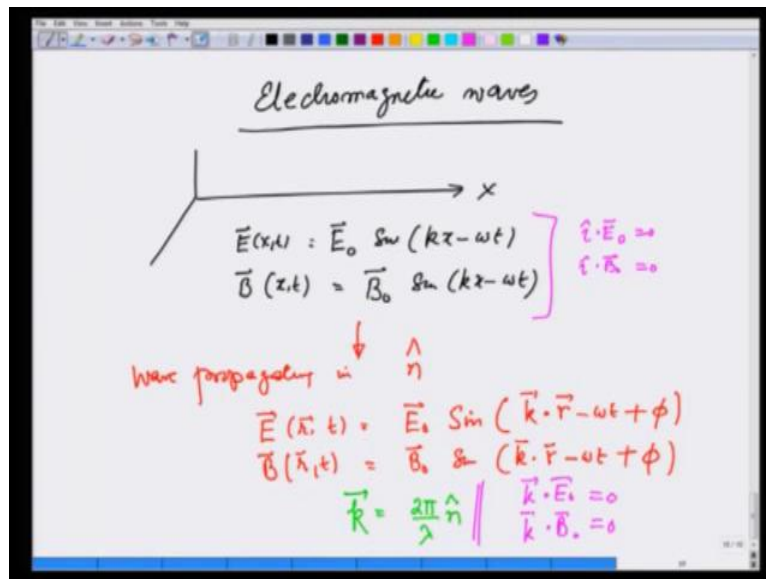 File Edit View Insert Actions Tools Help
Electromagnetic waves
x
E⃗(x,t) = E⃗₀ Sin (kx-ωt)
î·E⃗₀ =0
B⃗ (x,t) = B⃗₀ Sin (kx-ωt)
î·B⃗₀ =0
Wave propagating in n̂
E⃗ (r⃗, t) = E⃗₀ Sin (k⃗·r⃗-ωt+ϕ)
B⃗(r⃗,t) = B⃗₀ Sin (k⃗·r⃗-ωt+ϕ)
k⃗ = 2π/λ n̂ || k⃗·E⃗₀ =0
k⃗·B⃗₀ =0